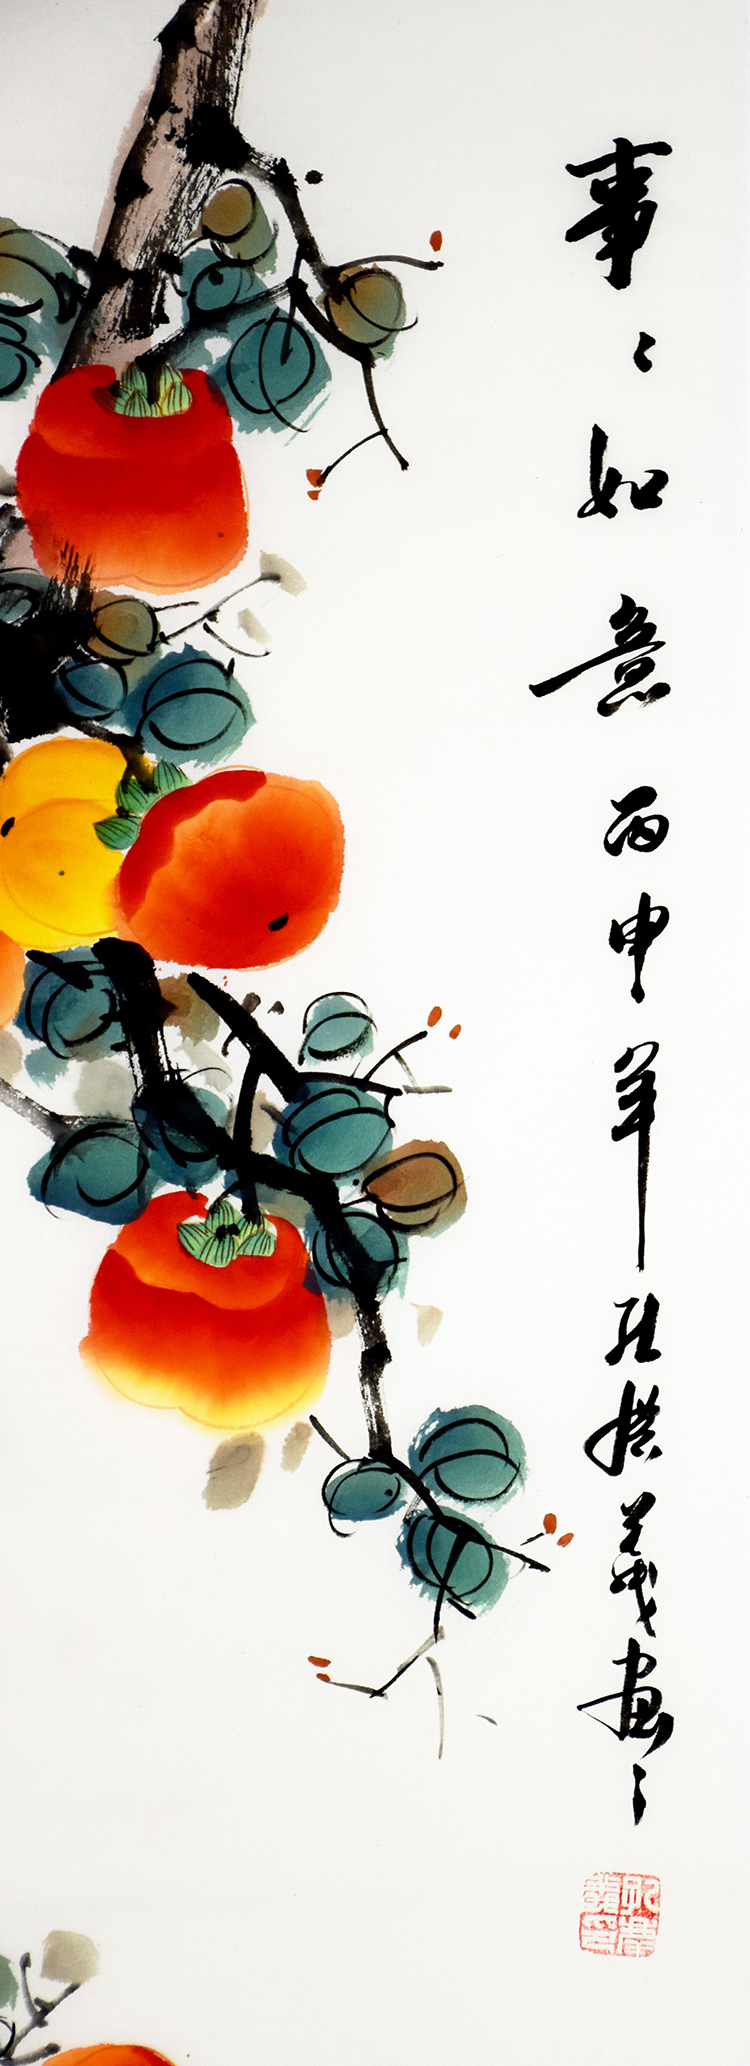 事〻如意丙申年孔義画